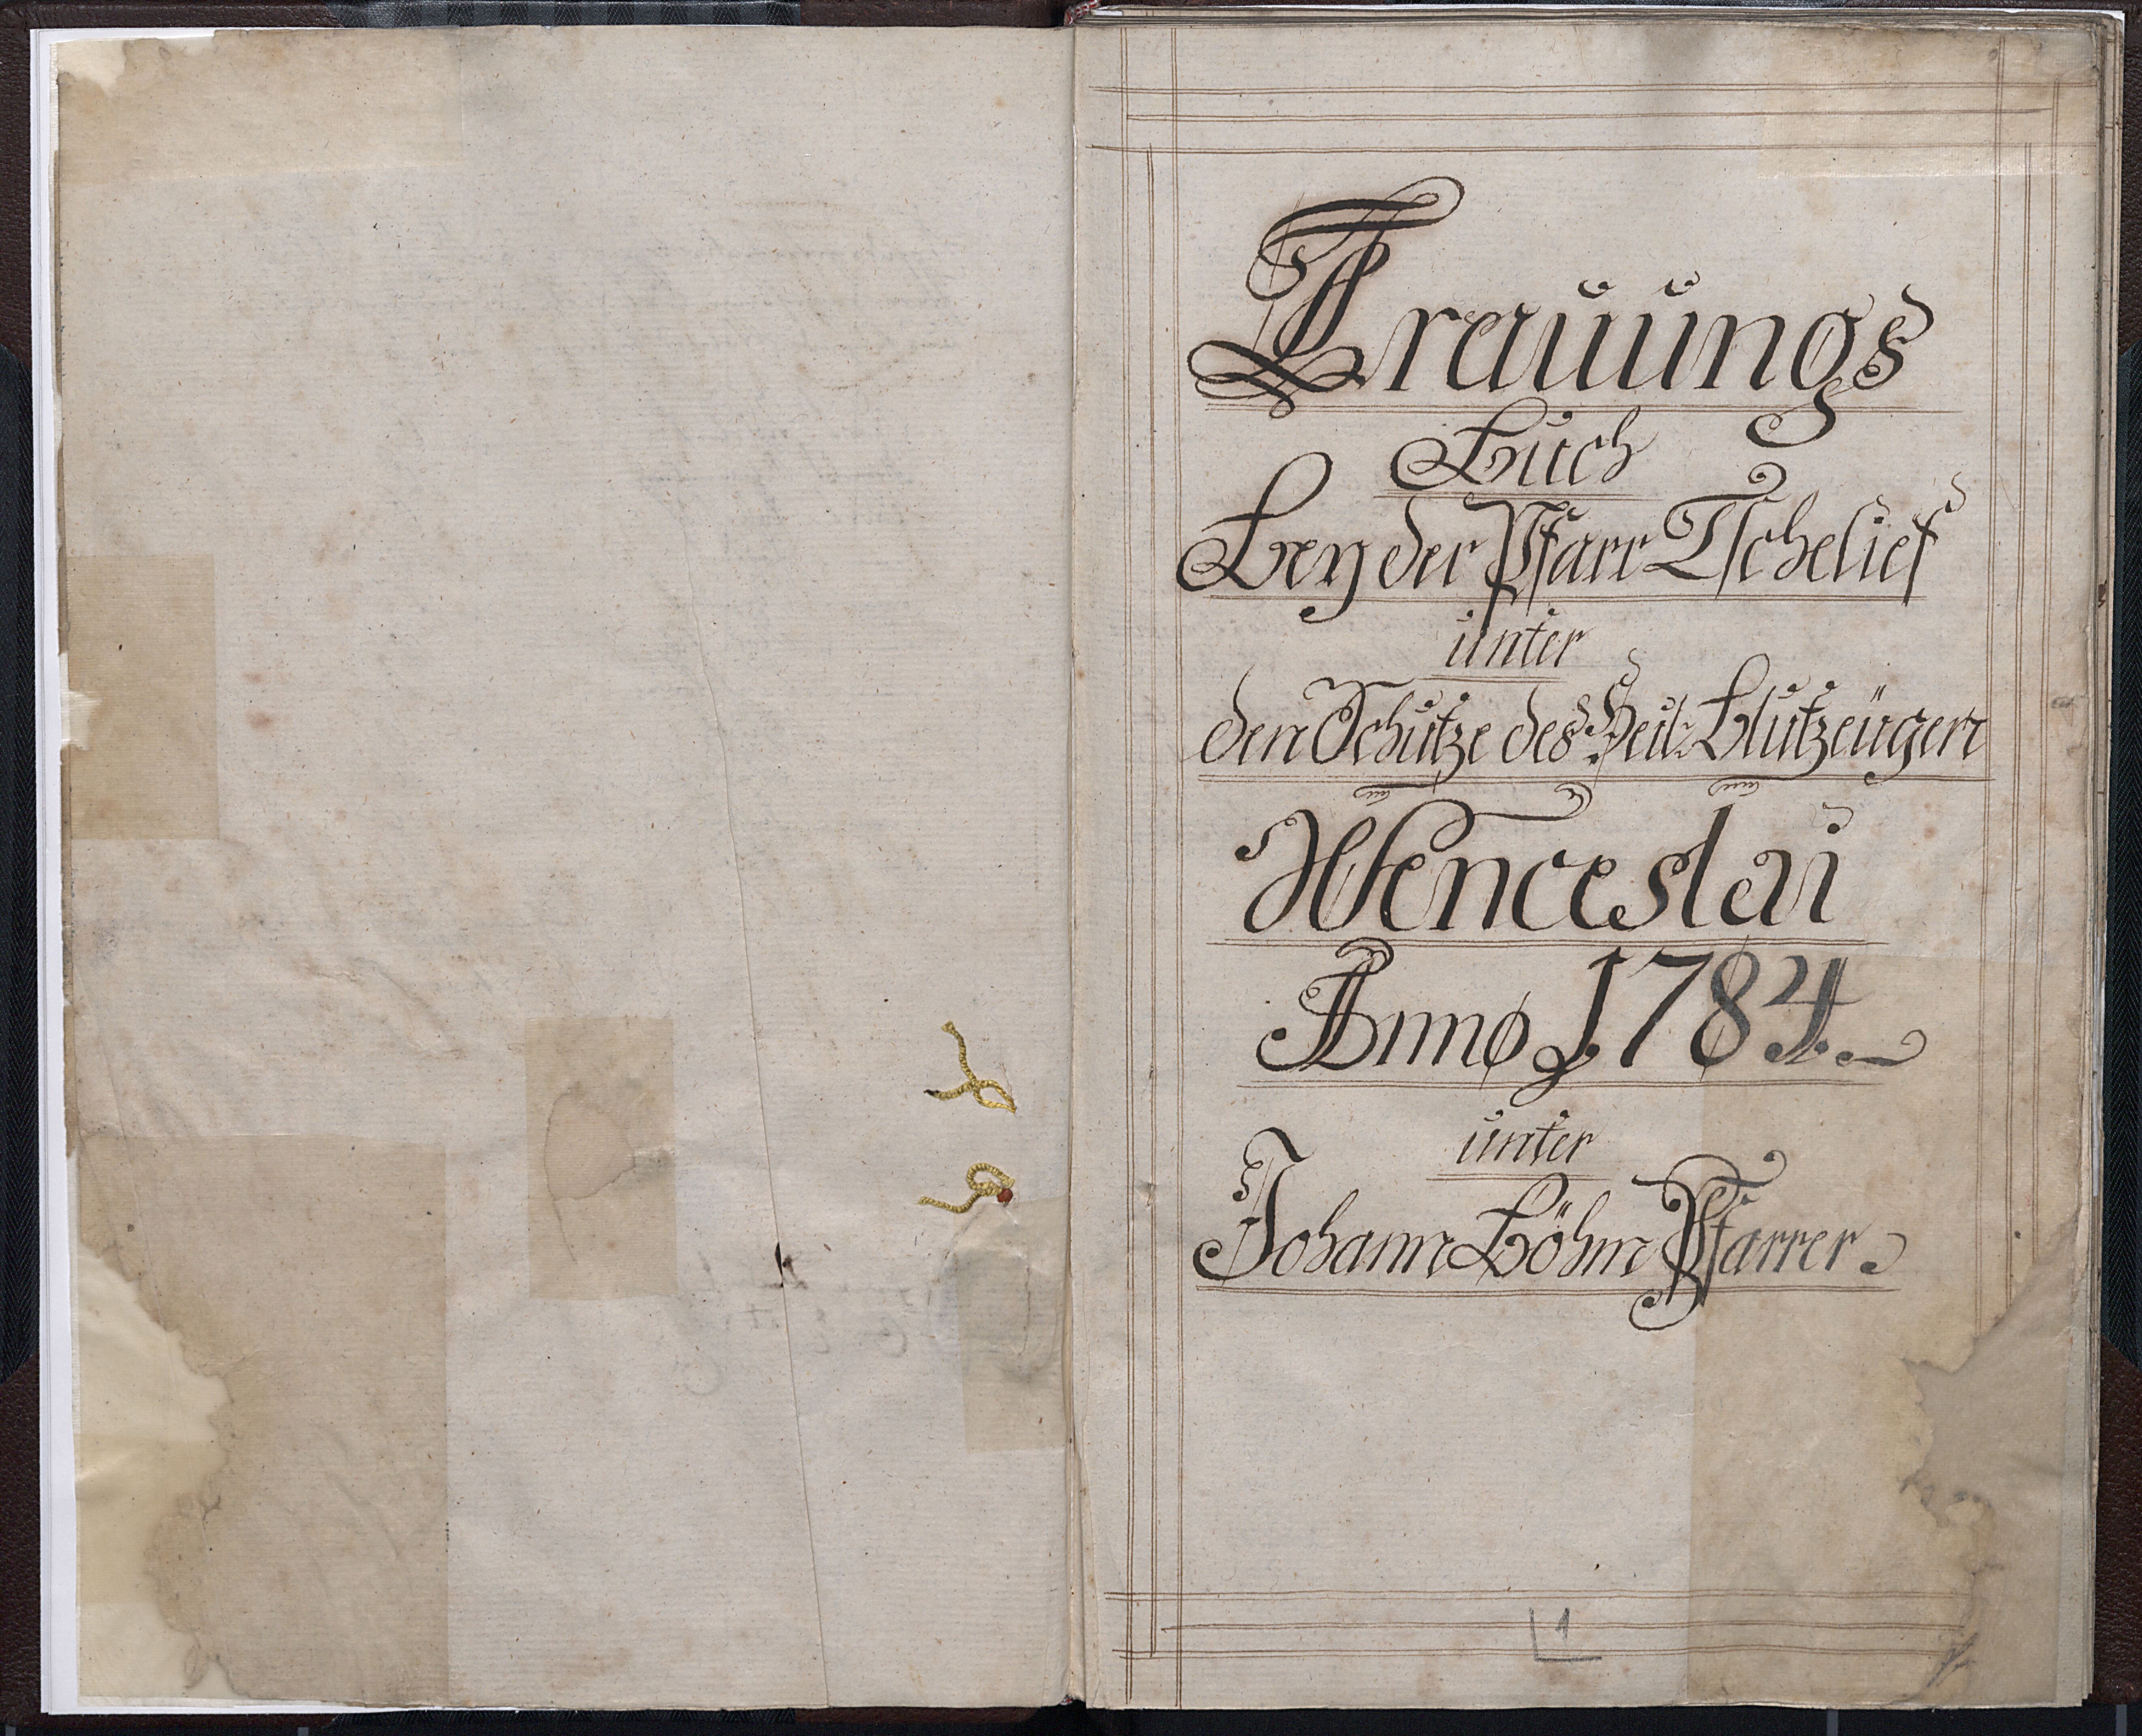 Trauungs
Buch
Bey der Pfarr Tschelief
unter
den Schutze des Heil: Blutzeugen
Wenceslai
Anno 1784.
unter
Johann Böhm Pfarrer
1